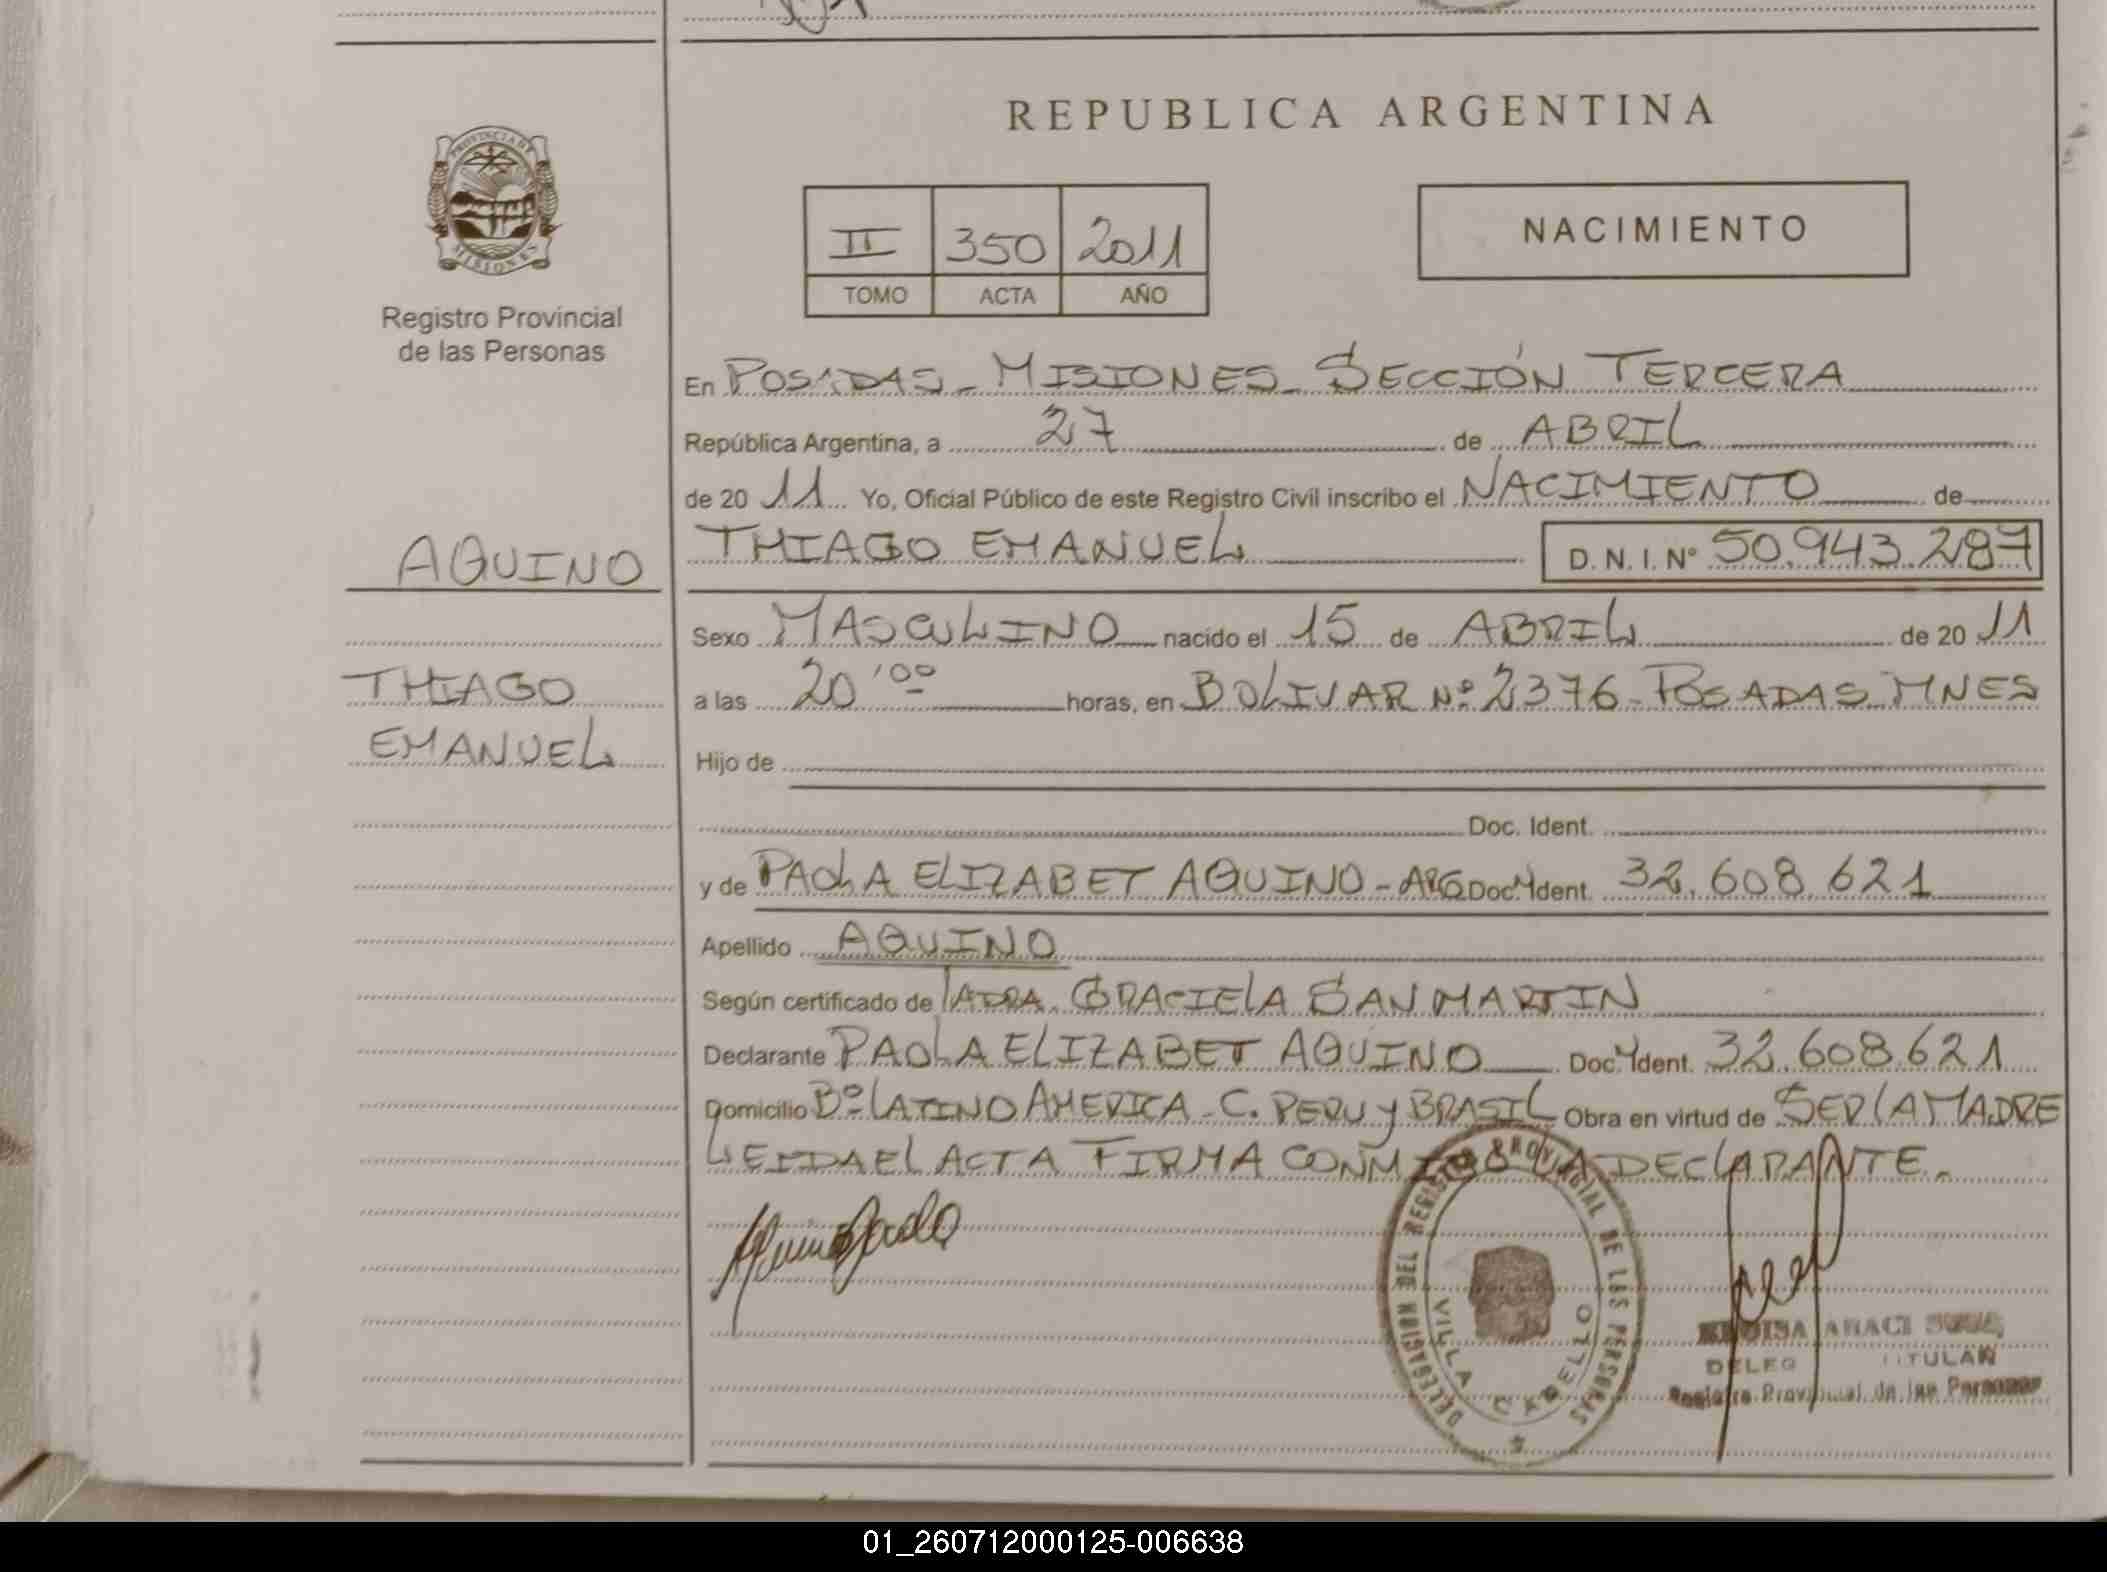 REPUBLICA ARGENTINA
PROVINCIA DE MISIONES
Registro Provincial
de las Personas
II 350 2011
TOMO ACTA AÑO
NACIMIENTO
En POSADAS - MISIONES - SECCIÓN TERCERA
República Argentina, a 27 de ABRIL
de 20 11 Yo, Oficial Público de este Registro Civil inscribo el NACIMIENTO de
AQUINO
THIAGO EMANUEL D.N.I. Nº 50.943.287
Sexo MASCULINO nacido el 15 de ABRIL de 20 11
THIAGO
EMANUEL
a las 20'00 horas, en BOLIVAR Nº 2376 - POSADAS MNES
Hijo de
Doc. Ident.
y de PAOLA ELIZABET AQUINO - ARG Doc. Ident. 32.608.621
Apellido AQUINO
Según certificado de GRACIELA SAN MARTIN
Declarante PAOLA ELIZABET AQUINO Doc. Ident. 32.608.621
Domicilio Bº LATINO AMERICA - C. PERU y BRASIL Obra en virtud de SER LA MADRE
LEIDA EL ACTA FIRMA CONMIGO LA DECLARANTE.
DELEGACION DEL REGISTRO PROVINCIAL DE LAS PERSONAS
VILLA CABELLO
ARACI
TITULAR
Registro Provincial de las Personas
01_260712000125-006638